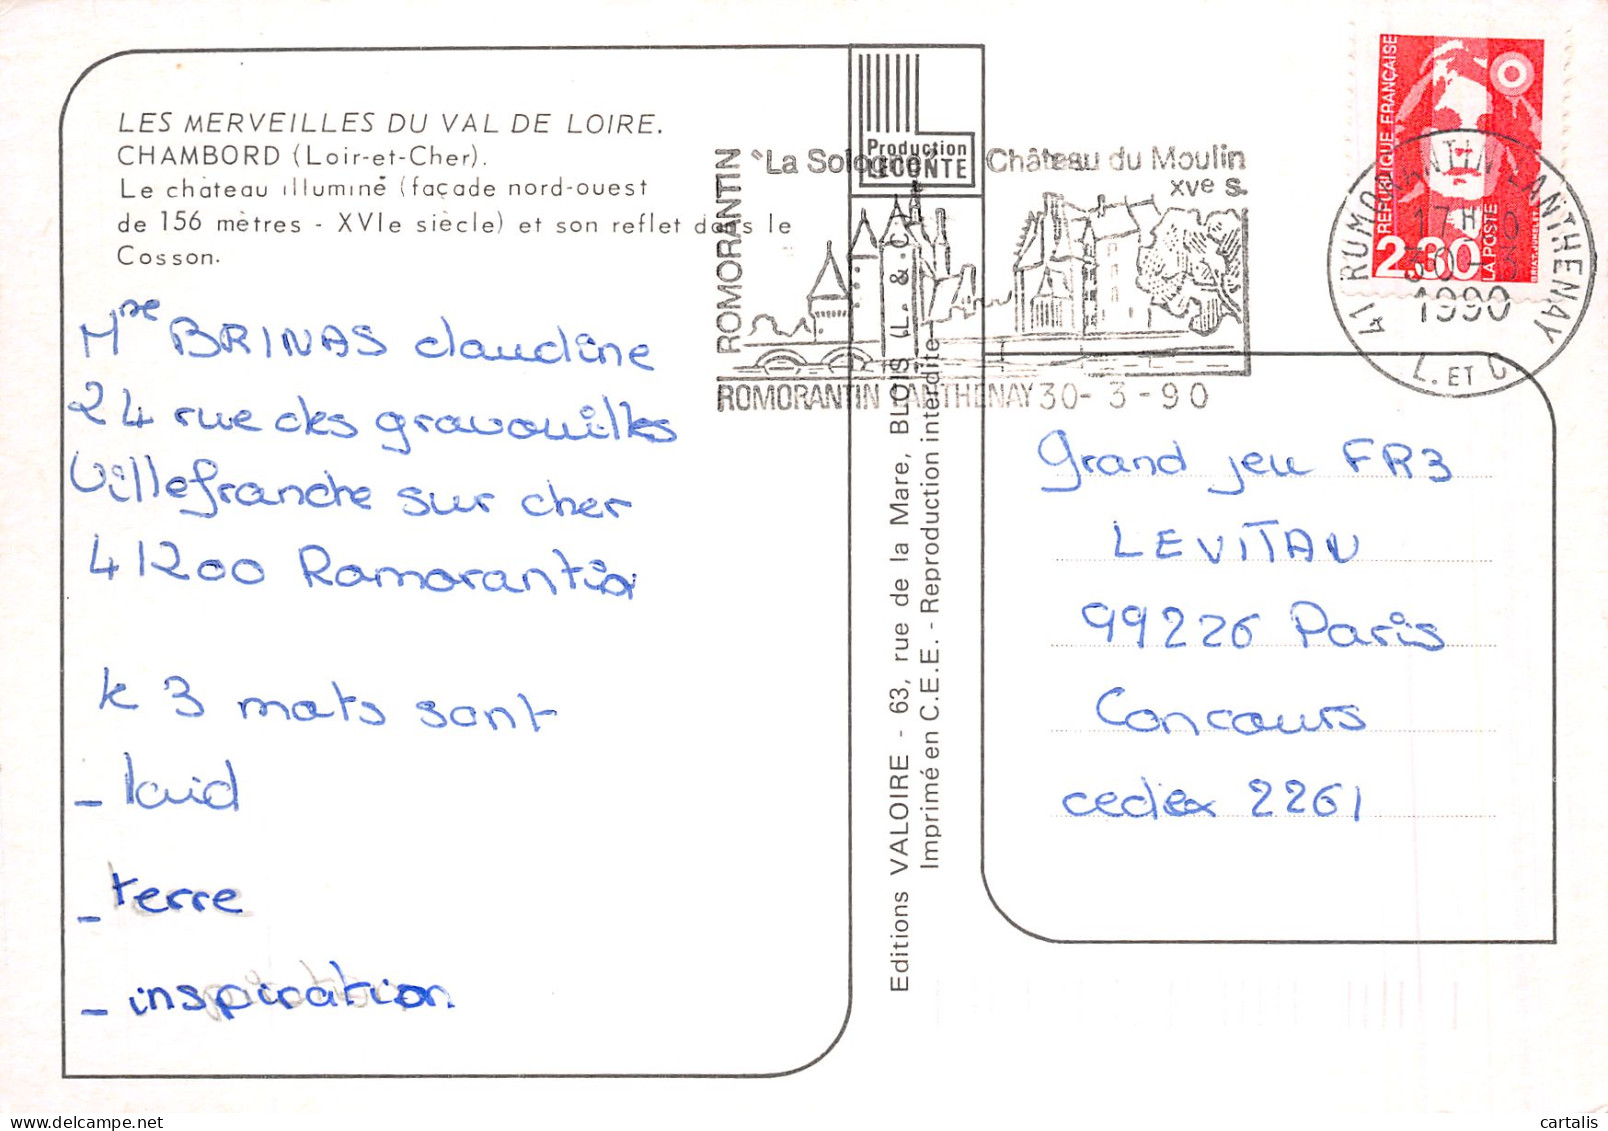 LES MERVEILLES DU VAL DE LOIRE.
CHAMBORD (Loir-et-Cher).
Le château illuminé (façade nord-ouest
de 156 mètres - XVIe siècle) et son reflet dans le
Cosson.
Mme BRINAS claudine
24 rue des gravouilles
Villefranche sur cher
41200 Romorantin
le 3 mots sont
- laid
- terre
- inspiration
Production
LECONTE
Editions VALOIRE - 63, rue de la Mare, BLOIS (L. & C.)
Imprimé en C.E.E. - Reproduction interdite
ROMORANTIN
"La Sologne" Château du Moulin
XVe S.
ROMORANTIN LANTHENAY 30-3-90
REPUBLIQUE FRANÇAISE
2,30
LA POSTE
41 ROMORANTIN LANTHENAY
17H
30-3
1990
L. ET C.
grand jeu FR3
LEVITAN
99226 Paris
Concours
cedex 2261
cartalis